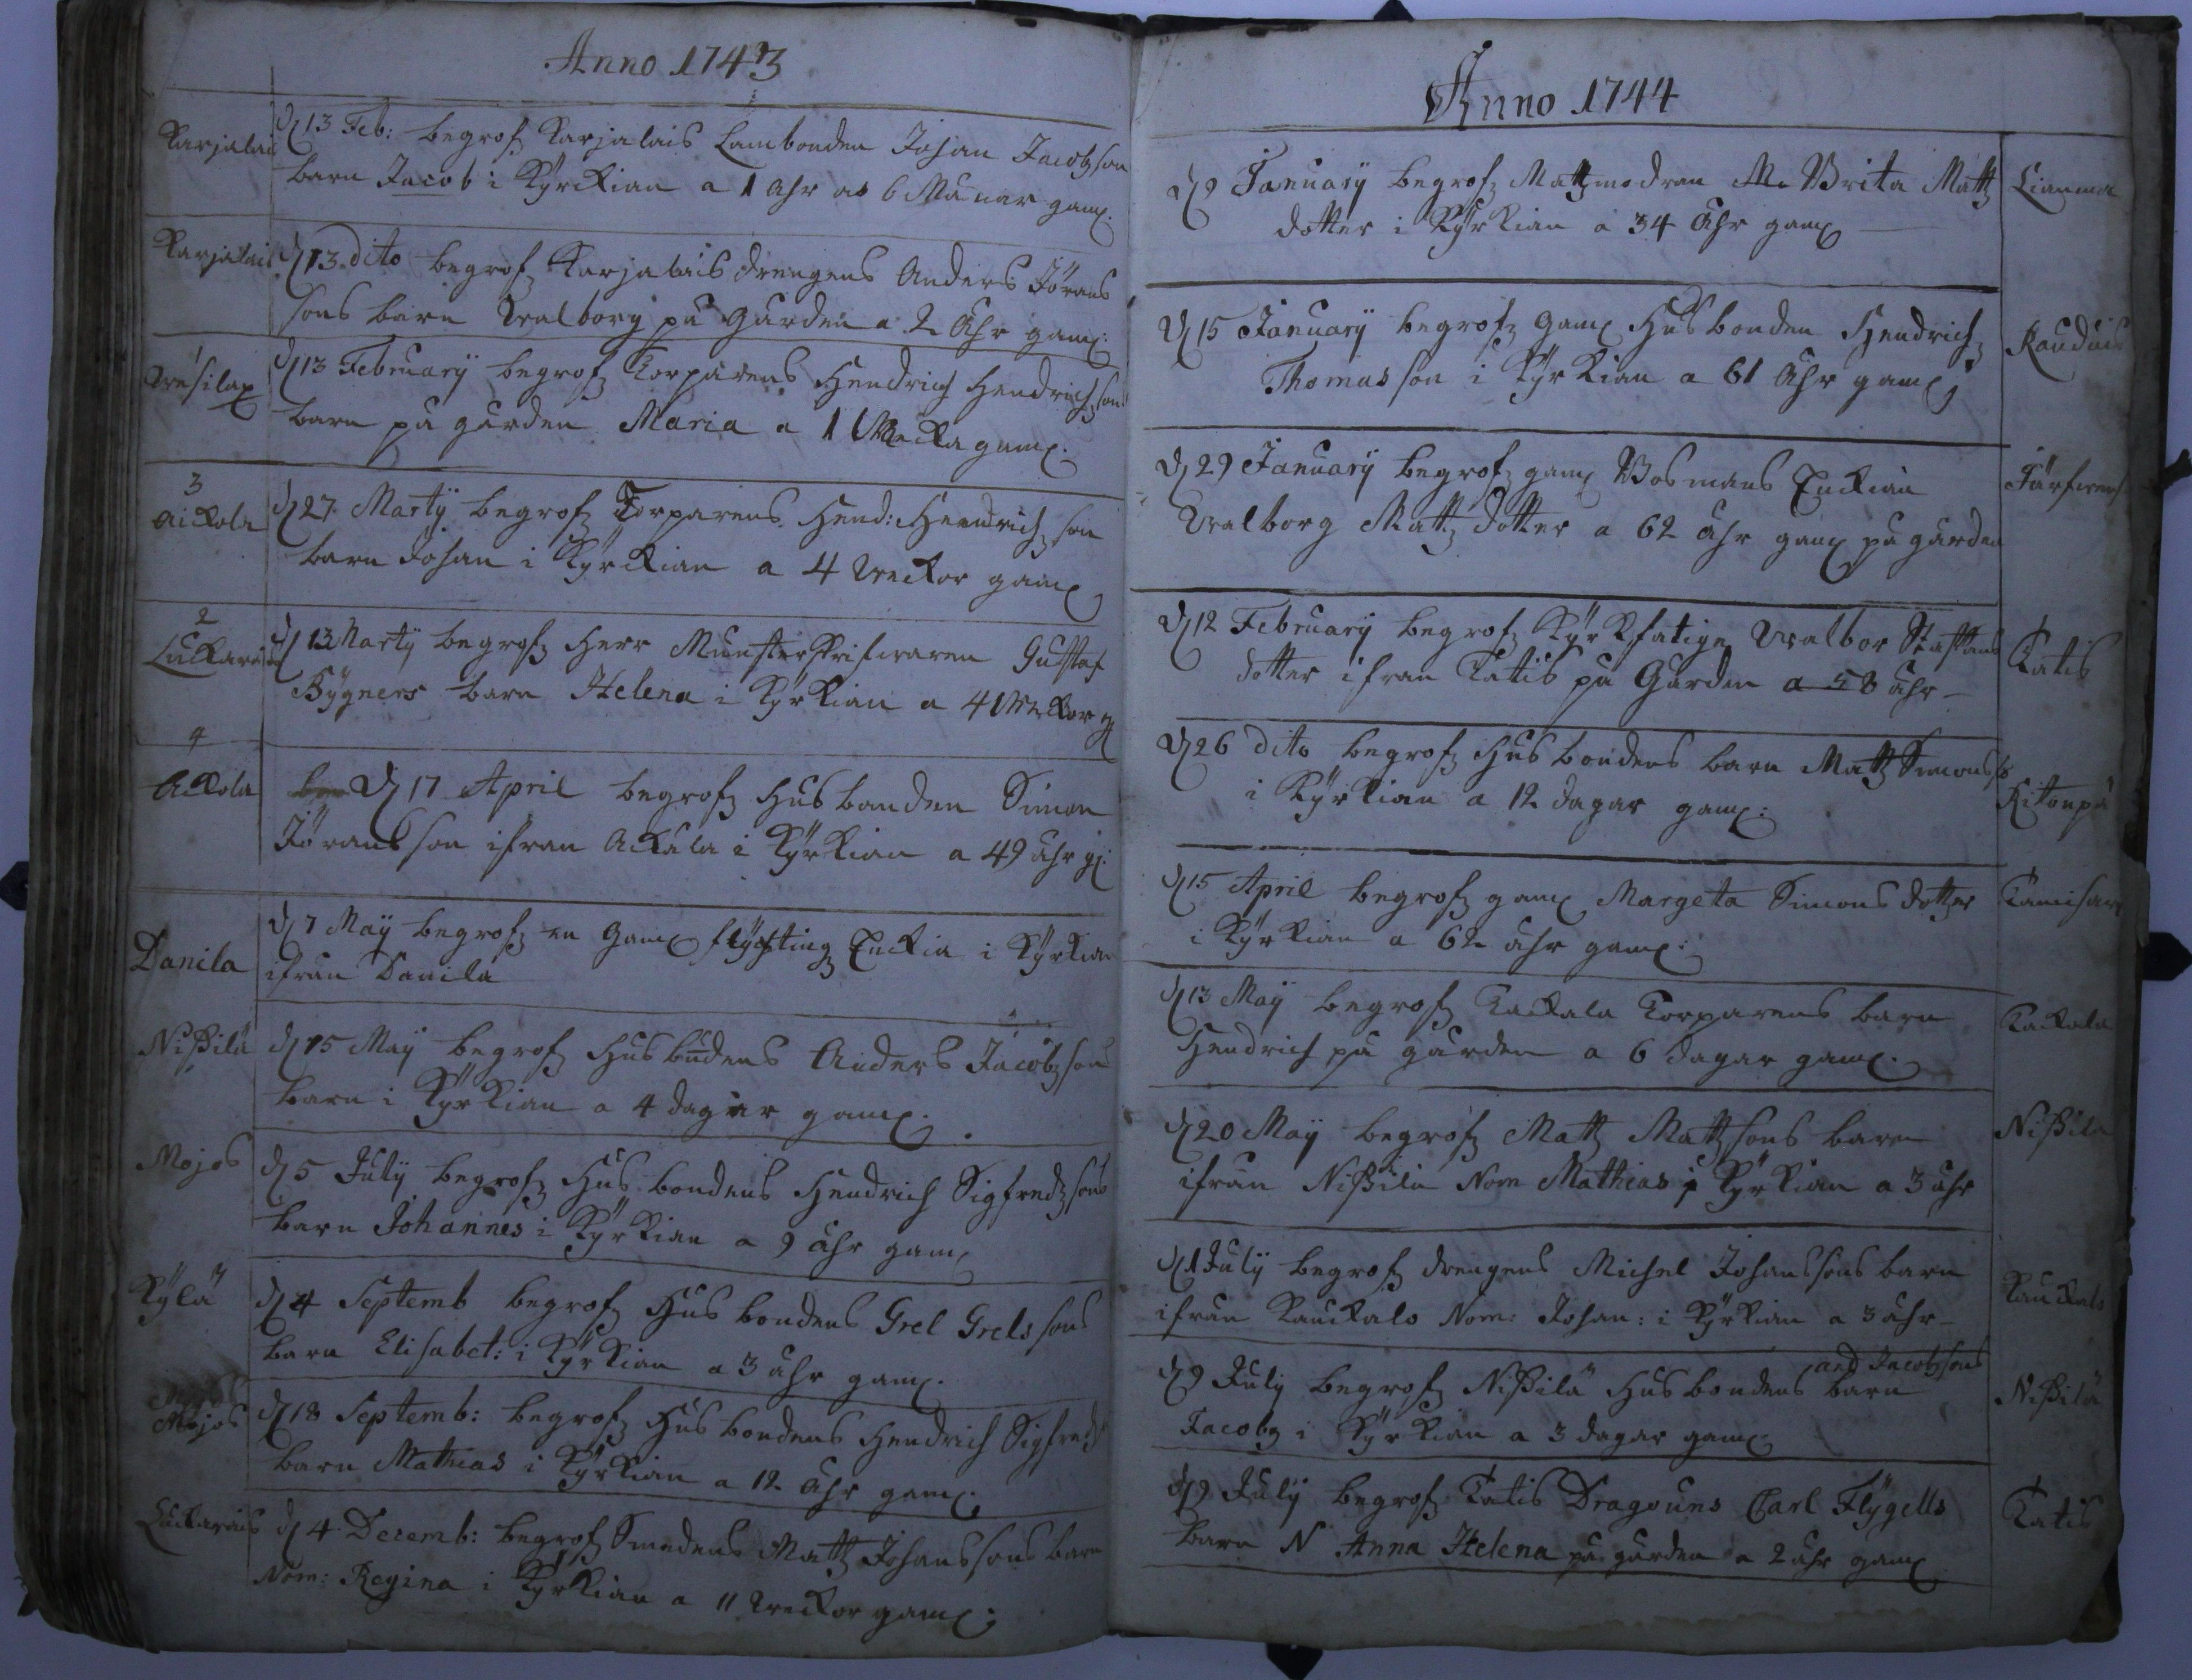 Anno 1743
Karjalais
d 13 Feb: begrofz Karjalais Lambonden Johan Jacobzson
barn Jacob i Kÿrckian a 1 åhr as 6 Månar gam:
Karjalais
d 13 dito begrofz Karjalais drengens Anders Jörans
sons barn Walborg på Gården a 2 åhr gam:
Wesilax
d 13 Februarÿ begrofz Torparens Hendrich Hendrichzson
barn på gården Maria a 1 Wecka gam:
3
Aickola
d 27 Martÿ begrofz Torparens Hend: Hendrichzson
barn Johan i Kÿrckian a 4 Weckor gam:
2
Luckarais
d 13 Martÿ begrofz Herr Munsterskrifwaren Gustaf
Bÿgners barn Helena i Kÿrkian a 4 Weckor g:
4
Ackola
d 17 April begrofz Husbonden Simon
Jöransson ifran Ackala i Kÿrkian a 49 åhr g:
Danila
d 7 Maÿ begrofz en Gam: flÿchting Enckia i Kÿrkian
ifrån Danila
Nißilä
d 15 Maÿ begrofz Husbūdens Anders Jacobzsons
barn i Kÿrkian a 4 dagar gam:
Mojos
d 5 Julÿ begrofz Husbondens Hendrich Sigfredzsons
barn Johannes i Kÿrkian a 9 åhr gam:
Kÿlä
d 4 Septemb begrofz Husbondens Grel Grelssons
barn Elisabet: i Kÿrkian a 3 åhr gam:
Mojos
d 18 Septemb: begrofz Husbondens Hendrich Sigfredz
barn Mathias i Kÿrkian a 12 åhr gam:
Luckarais
d 4 Decemb: begrofz Smedens Mattz Johanssons barn
Nom: Regina i Kÿrkian a 11 Weckor gam:
Anno 1744
d 9 Januarÿ begrofz Mattzmodran M. Brita Mattz Lianma
dotter i Kÿrkian a 34 åhr gam:
d 15 Januarÿ begrofz Gam: Husbonden Hendrich Rauduis
Thomasson i Kÿrkian a 61 åhr gam:
d 29 Januarÿ begrofz gam: Bosmans Enckian
Walborg Mattz dotter a 62 åhr gam: på gården
d 12 Februarÿ begrofz Kÿrkfatige Walbor Staffans
dotter ifran Katis på Gården a 58 åhr Katis
d 26 dito begrofz Husbondens barn Mattz Simonss
i Kÿrkian a 12 dagar gam: Ritonpä
d 15 April begrofz gam: Margeta Simons dotter
i Kÿrkian a 62 åhr gam:
d 13 Maÿ begrofz Kackala Torparens barn Kackala
Hendrich på gården a 6 dagar gam:
d 20 Maÿ begrofz Mattz Mattzsons barn Nißilä
ifrån Nißilä Nom Mathias i Kÿrkian a 3 åhr
d 1 Julÿ begrofz drengens Michel Johanssons barn
ifrån Kauckalo Nom: Johan: i Kÿrkian a 3 åhr Kauckalo
and Jacobzsons
d 9 Julÿ begrofz Nißilä Husbondens barn Nißilä
Jacobz i Kÿrkian a 3 dagar gam:
d 9 Julÿ begrofz Katis Dragouns Carl Flÿgells Katis
barn N Anna Helena på gården a 2 åhr gam: